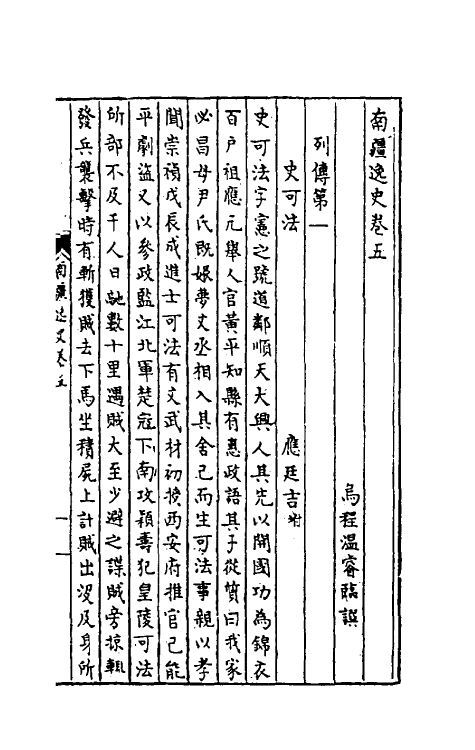 南疆逸史卷五
烏程温睿臨譔
列傳第一
史可法 應廷吉附
史可法字憲之號道鄰順天大興人其先以開國功為錦衣
百户祖應元舉人官黃平知縣有惠政語其子從質曰我家
必昌母尹氏既娠夢文丞相入其舍已而生可法事親以孝
聞崇禎戊辰成進士可法有文武材初授西安府推官已能
平劇盜又以參政監江北軍楚寇下南攻潁壽犯皇陵可法
所部不及千人日馳數十里遇賊大至少避之諜賊旁掠輒
發兵襲擊時有斬獲賊去下馬坐積屍上計賊出沒及身所
南疆逸史卷五
一